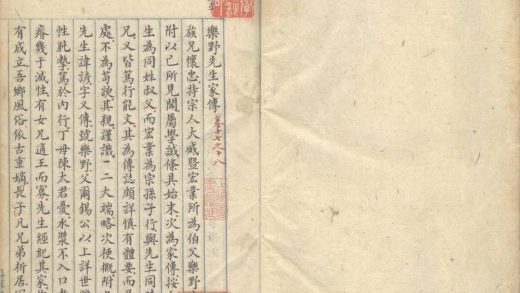 樂野先生家傳 卷十七之十八
族兄懷忠持宗人大威暨宏業所為伯父樂野
附以己所見聞屬學誠條具始末次為家傳按
生為同姓叔父而宏業為宗孫子行與先生同
兄又皆篤行能文其為傳誌頗詳慎有體要而
處不為苟諛其親謹識一二大端略次梗概附
先生諱諺字又傳號樂野父爾錫公以上詳世
性肫摯篤於內行丁母陳太君憂水漿不入口
瘠幾于滅性有女兄適王而寡先生經紀其家
有成立吾鄉風俗依古重嫡長子凡兄弟析居